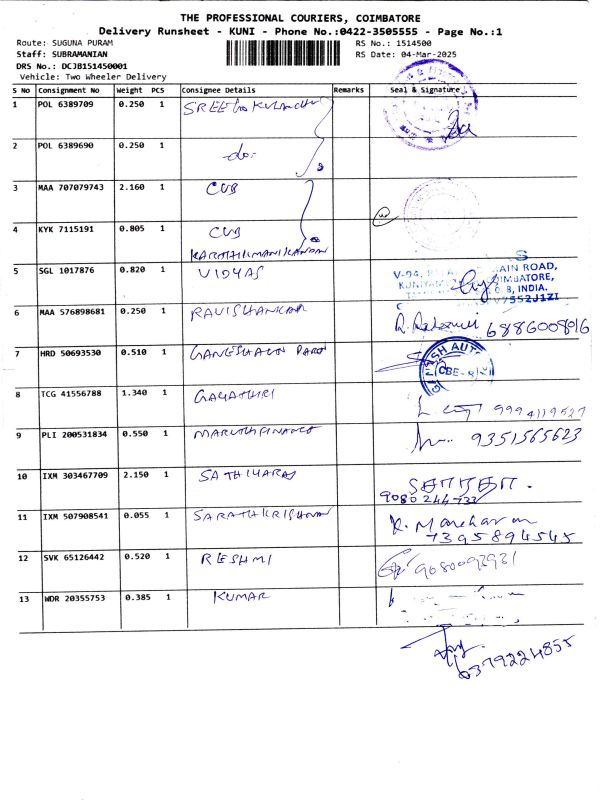 THE PROFESSIONAL COURIERS, COIMBATORE
Delivery Runsheet - KUNI - Phone No.:0422-3505555 - Page No.:1
Route: SUGUNA PURAM RS No.: 1514500
Staff: SUBRAMANIAN RS Date: 04-Mar-2025
DRS No.: DCJB151450001
Vehicle: Two Wheeler Delivery
S No Consignment No Weight PCS Consignee Details Remarks Seal & Signature
1 POL 6389709 0.250 1 SREE
2 POL 6389690 0.250 1 -do-
3 MAA 707079743 2.160 1 CUB
4 KYK 7115191 0.805 1 CUB
KARATHIKMANIKANDAN
5 SGL 1017876 0.820 1 VIDYAS
MAIN ROAD,
COIMBATORE,
INDIA.
6 MAA 576898681 0.250 1 RAVISHANKAR 68186008016
7 HRD 50693530 0.510 1 GANESHAUTO PARTS
GANESH AUTO
CBE-8
8 TCG 41556788 1.340 1 GAYATHRI 9994119527
9 PLI 200531834 0.550 1 MARUTHIFINANCE 9351565623
10 IXM 303467709 2.150 1 SATHIYARAJ
9080244733
11 IXM 507908541 0.055 1 SARATHKRISHNAN K. Manoharan
7395894545
12 SVK 65126442 0.520 1 RESHMI 9080093931
13 WDR 20355753 0.385 1 KUMAR
6379224855